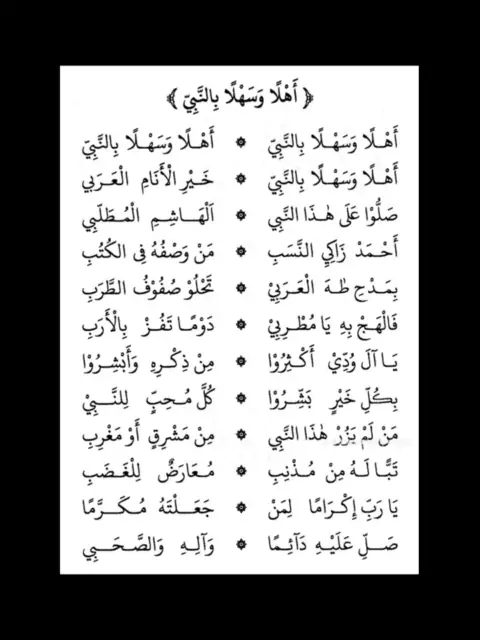 ﴿ أَهْلًا وَسَهْلًا بِالنَّبِيّ ﴾
أَهْلًا وَسَهْلًا بِالنَّبِيّ ۞ أَهْلًا وَسَهْلًا بِالنَّبِيّ
أَهْلًا وَسَهْلًا بِالنَّبِيّ ۞ خَيْرِ الْأَنَامِ الْعَرَبِي
صَلُّوْا عَلَى هٰذَا النَّبِي ۞ اَلْهَاشِمِ الْمُطَلِّبِي
أَحْمَدْ زَاكِي النَّسَبِ ۞ مَنْ وَصْفُهُ فِى الكُتُبِ
بِمَدْحِ طٰهَ الْعَرَبِيْ ۞ تَحْلُوْ صُفُوْفُ الطَّرَبِ
فَالْهَجْ بِهِ يَا مُطْرِبِيْ ۞ دَوْمًا تَفُـزْ بِالْأَرَبِ
يَا آلَ وُدِّيْ أَكْثِرُوْا ۞ مِنْ ذِكْرِهِ وَأَبْشِرُوْا
بِكُلِّ خَيْرٍ بَشِّرُوْا ۞ كُلَّ مُحِبٍّ لِلنَّبِيْ
مَنْ لَمْ يَزُرْ هٰذَا النَّبِي ۞ مِنْ مَشْرِقٍ أَوْ مَغْرِبِ
تَبًّا لَهُ مِنْ مُذْنِبِ ۞ مُعَارَضٌ لِلْغَضَبِ
يَا رَبِّ إِكْرَامًا لِمَنْ ۞ جَعَلْتَهُ مُكَرَّمًا
صَلِّ عَلَيْهِ دَآئِمًا ۞ وَآلِهِ وَالصَّحَبِي